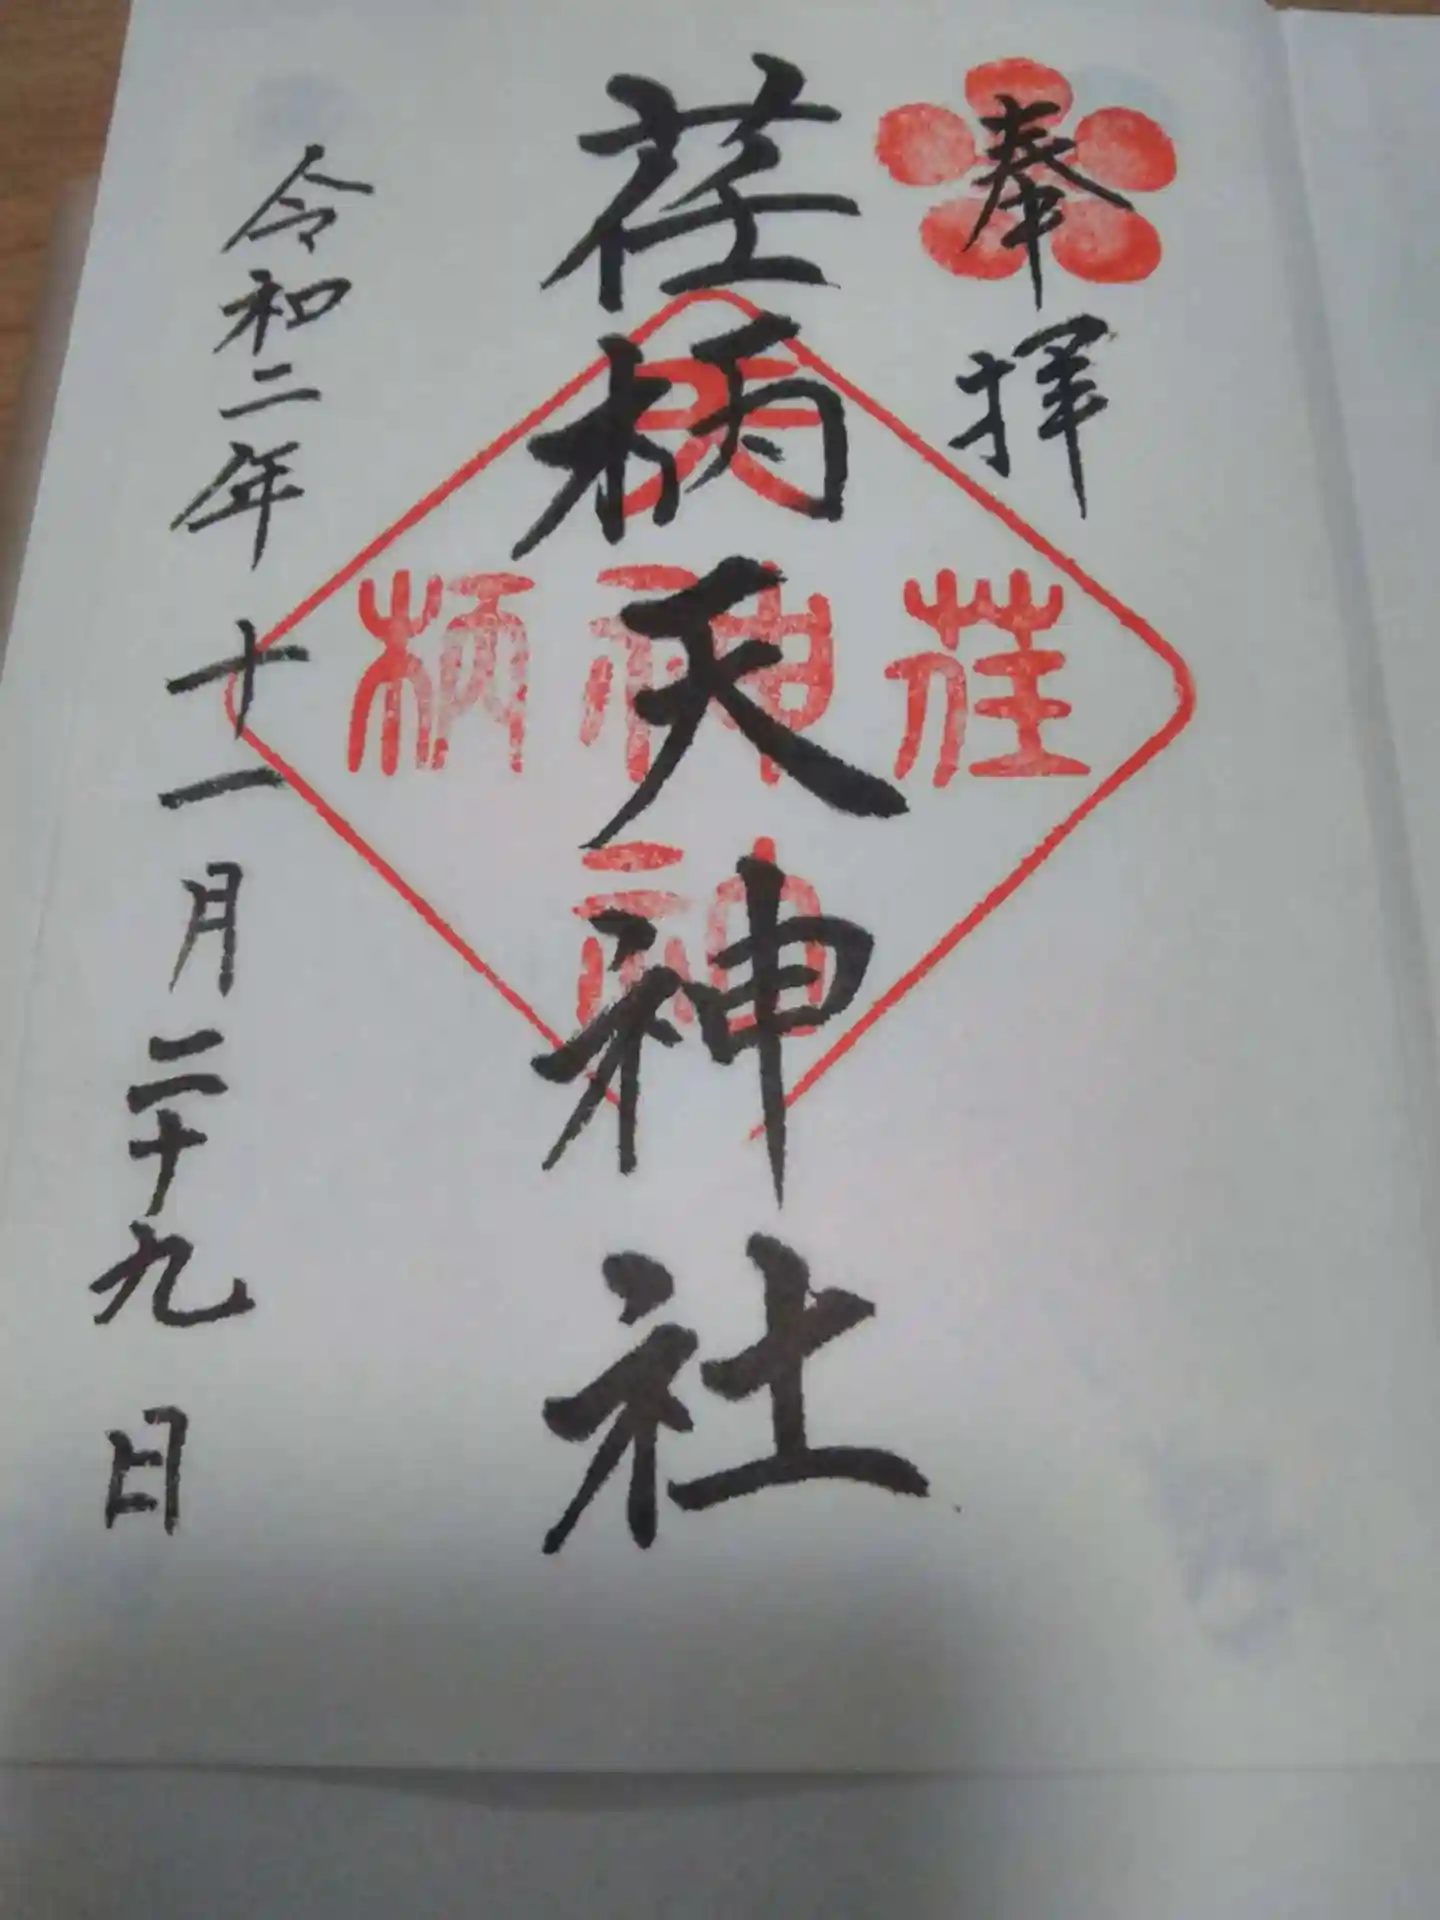 奉拝
荏柄天神社
天
荏神柄
社
令和二年十一月二十九日